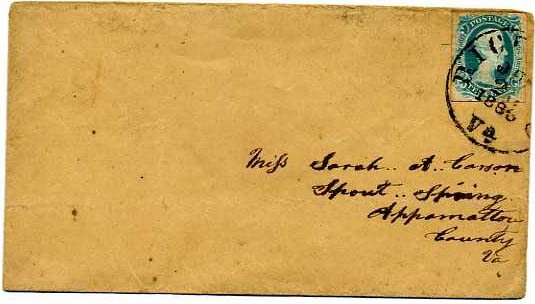 POSTAGE
RIC
1863
Va
Miss Sarah.. A.. Carson
Spout.. Spring
Appomattox
County
Va